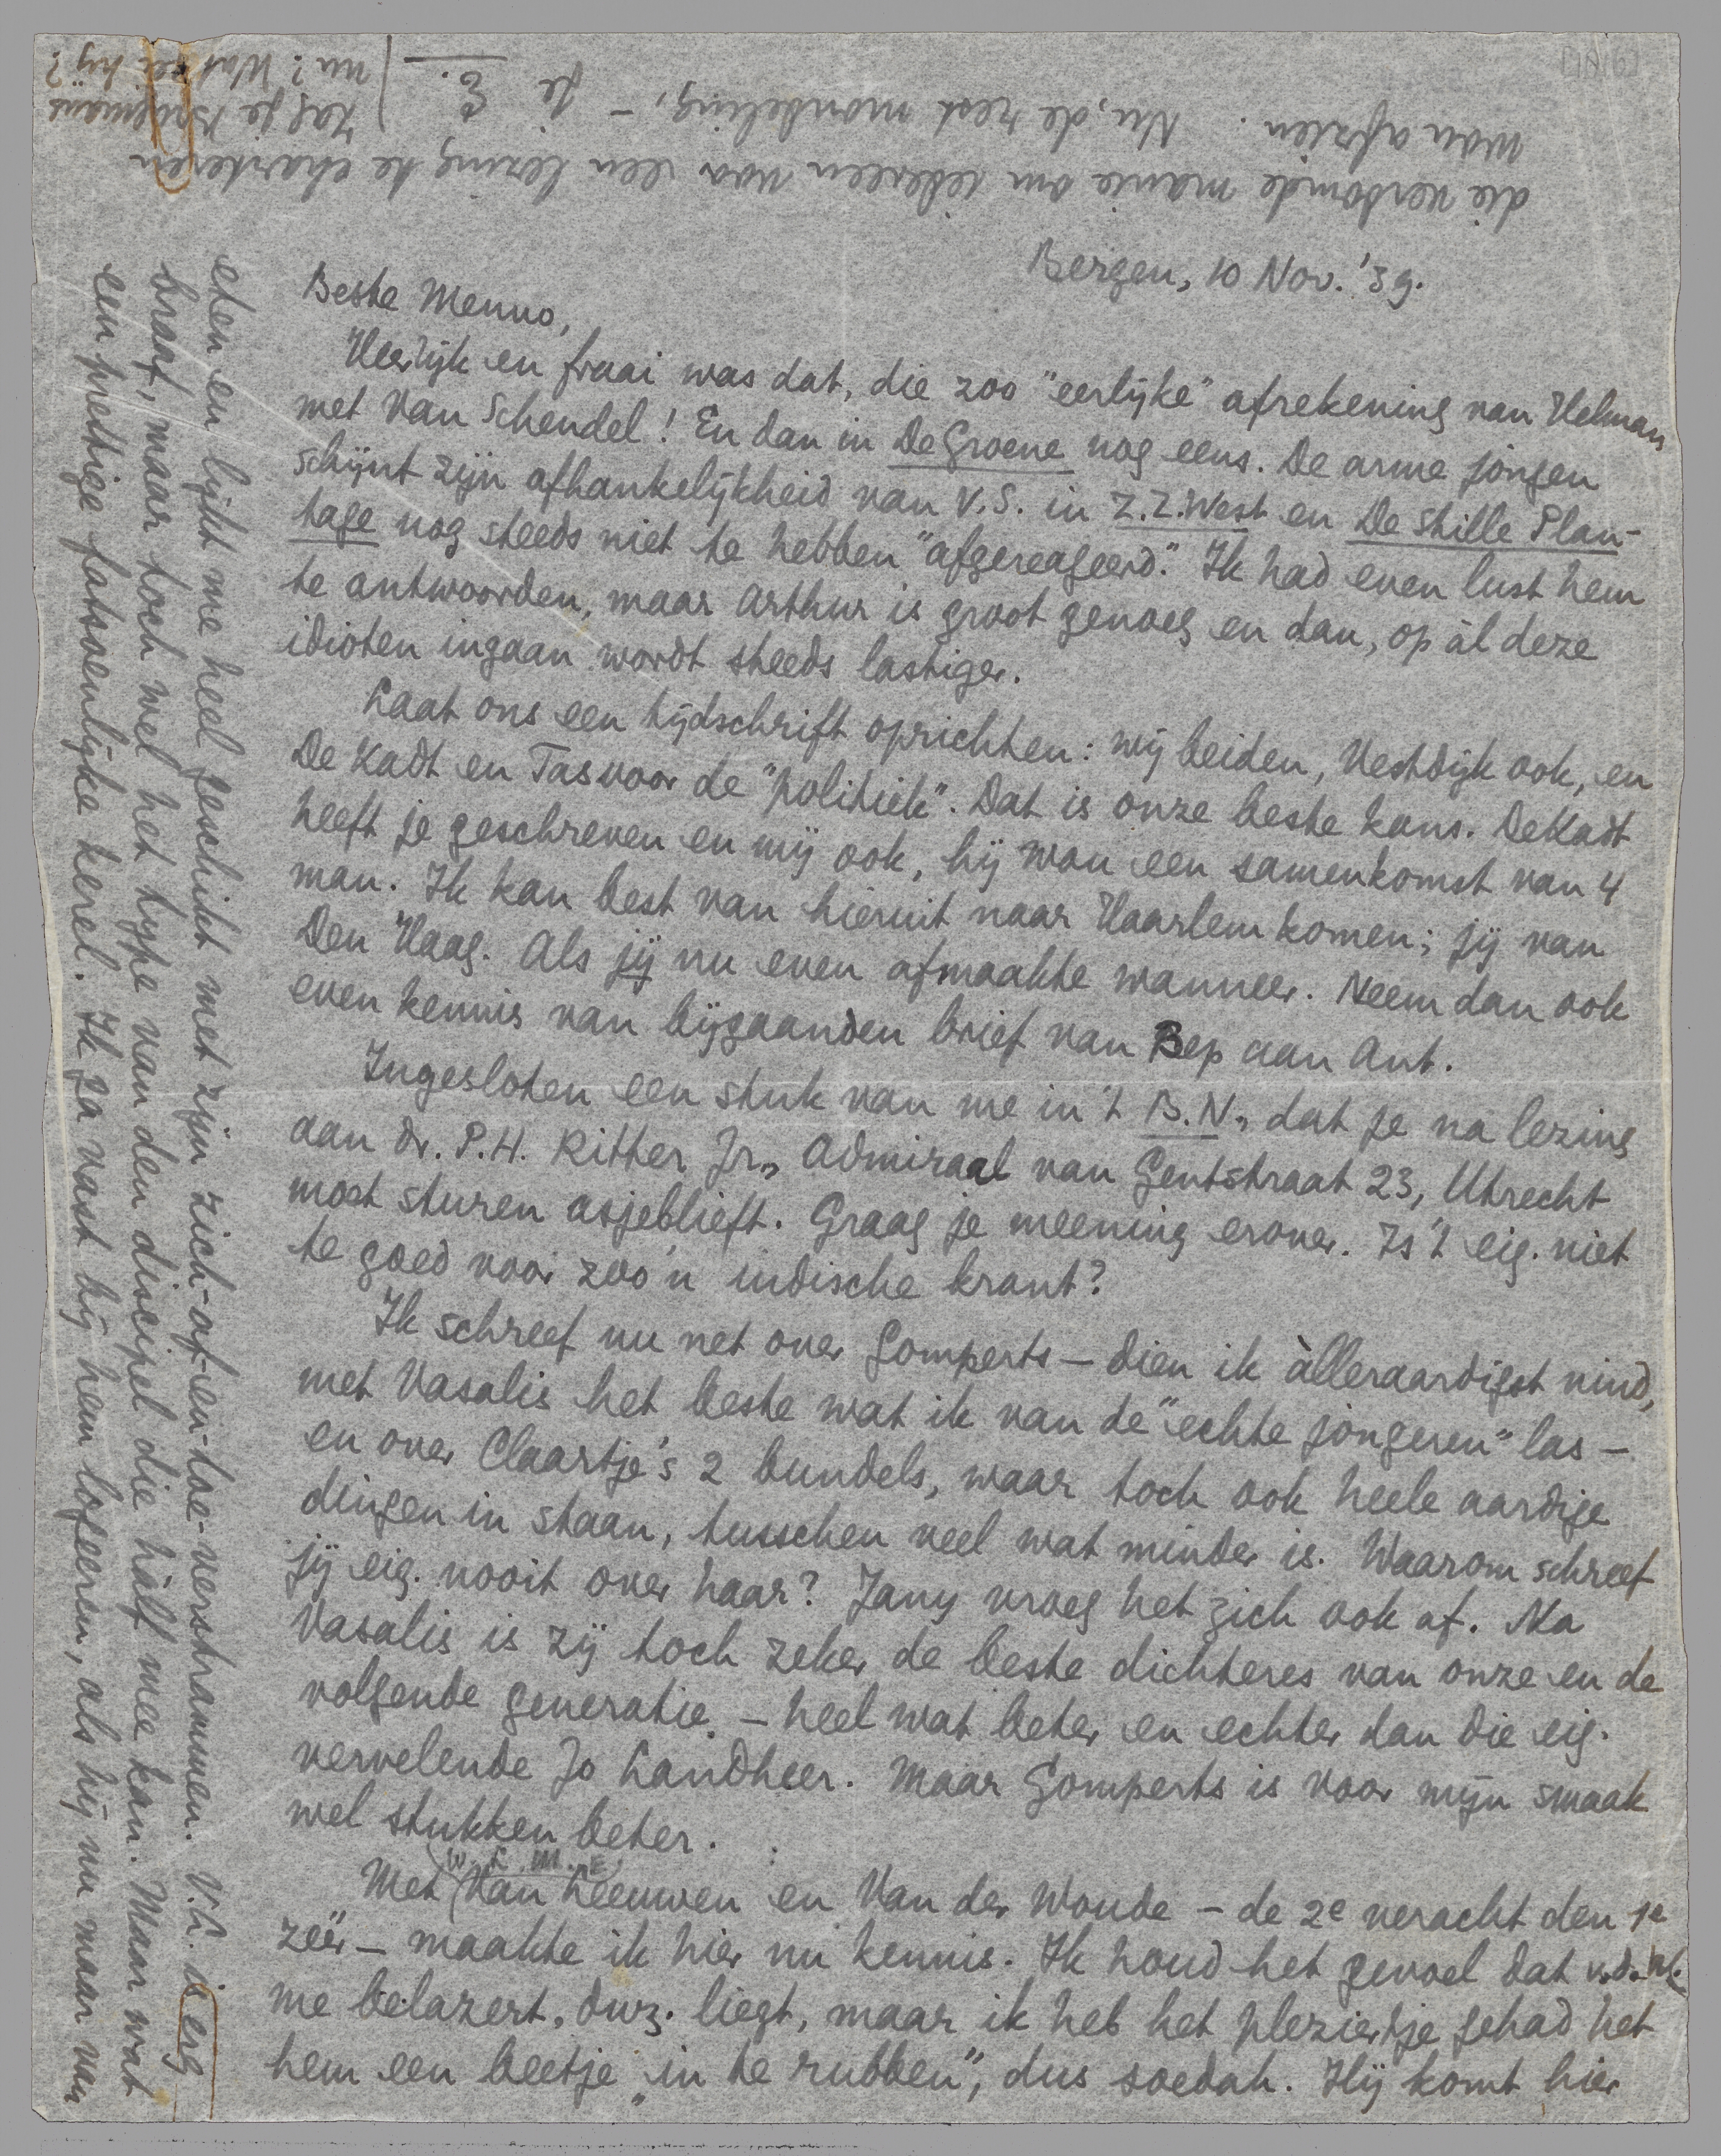 Bergen, 10 Nov. '39.
Beste Menno,
Heerlijk en fraai was dat, die zoo "eerlijke" afrekening van Helman
met Van Schendel! En dan in De Groene nog eens. De arme jongen
schijnt zijn afhankelijkheid van V.S. in Z.Z.West en De Stille Plan-
tage nog steeds niet te hebben "afgereageerd." Ik had even lust hem
te antwoorden, maar Arthur is groot genoeg en dan, op àl deze
idioten ingaan wordt steeds lastiger.
Laat ons een tijdschrift oprichten: wij beiden, Vestdijk ook, en
De Kadt en Tas voor de "politiek". Dat is onze beste kans. De Kadt
heeft je geschreven en mij ook, hij wou een samenkomst van 4
man. Ik kan best van hieruit naar Haarlem komen; jij van
Den Haag. Als jij nu even afmaakte wanneer. Neem dan ook
even kennis van bijgaanden brief van Bep aan Ant.
Ingesloten een stuk van me in 't B.N., dat je na lezing
aan Dr. P.H. Ritter Jr., Admiraal van Gentstraat 23, Utrecht
moet sturen asjeblieft. Graag je meening erover. Is 't eig. niet
te goed voor zoo'n indische krant?
Ik schreef nu net over Gomperts — dien ik àlleraardigst vind,
met Vasalis het beste wat ik van de "echte jongeren" las —
en over Claartje's 2 bundels, waar toch ook heele aardige
dingen in staan, tusschen veel wat minder is. Waarom schreef
jij eig. nooit over haar? Jany vroeg het zich ook af. Na
Vasalis is zij toch zeker de beste dichteres van onze en de
volgende generatie. — heel wat beter en echter dan die eig.
vervelende Jo Landheer. Maar Gomperts is voor mijn smaak
wel stukken beter.
(W.L.M.E.)
Met Van Leeuwen en Van der Woude — de 2e veracht den 1e
zéér — maakte ik hier nu kennis. Ik houd het gevoel dat v.d. W.
me belazert, dwz. liegt, maar ik heb het pleziertje gehad het
hem een beetje „in te rubben", dus soedah. Hij komt hier
eten en lijkt me heel geschikt met zijn zich-af-en-toe-verstrammen. V.L. is erg
braaf, maar toch wel het type van den discipel die hàlf mee kan. Maar wat
een prettige fatsoenlijke kerel. Ik ga vast bij hem logeeren, als hij nu maar van
die verdomde manie om iedereen voor een lezing te charteren
wou afzien. Nu, de rest mondeling, — Je E.
Zag je Brugmans
nu? Wat zei hij?